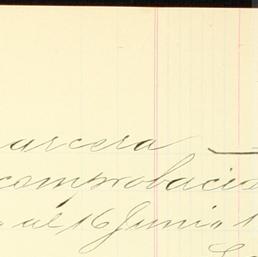 arcera
comprobacio
al 16 Junio 1